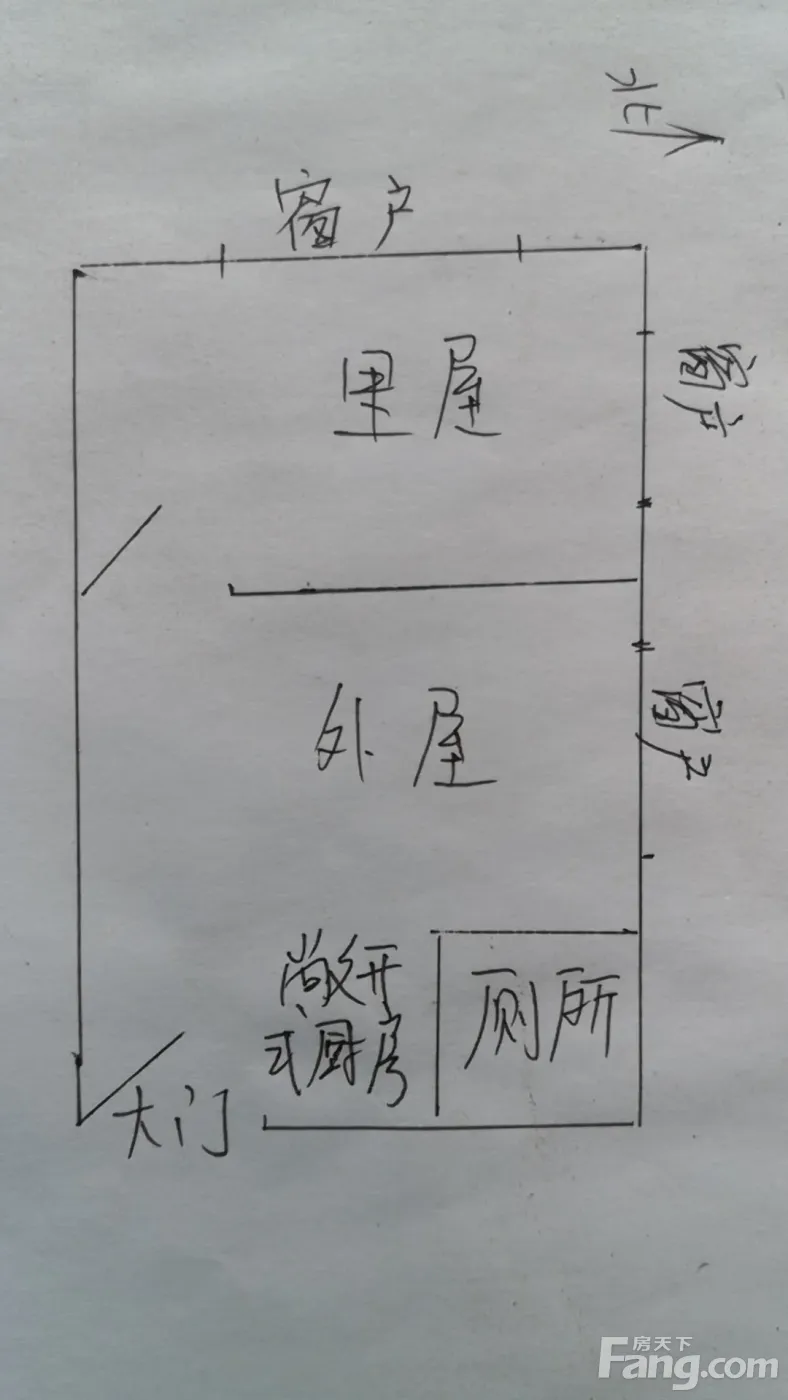 北
窗户
里屋
窗户
外屋
窗户
敞开
式厨房
厕所
大门
房天下
Fang.com